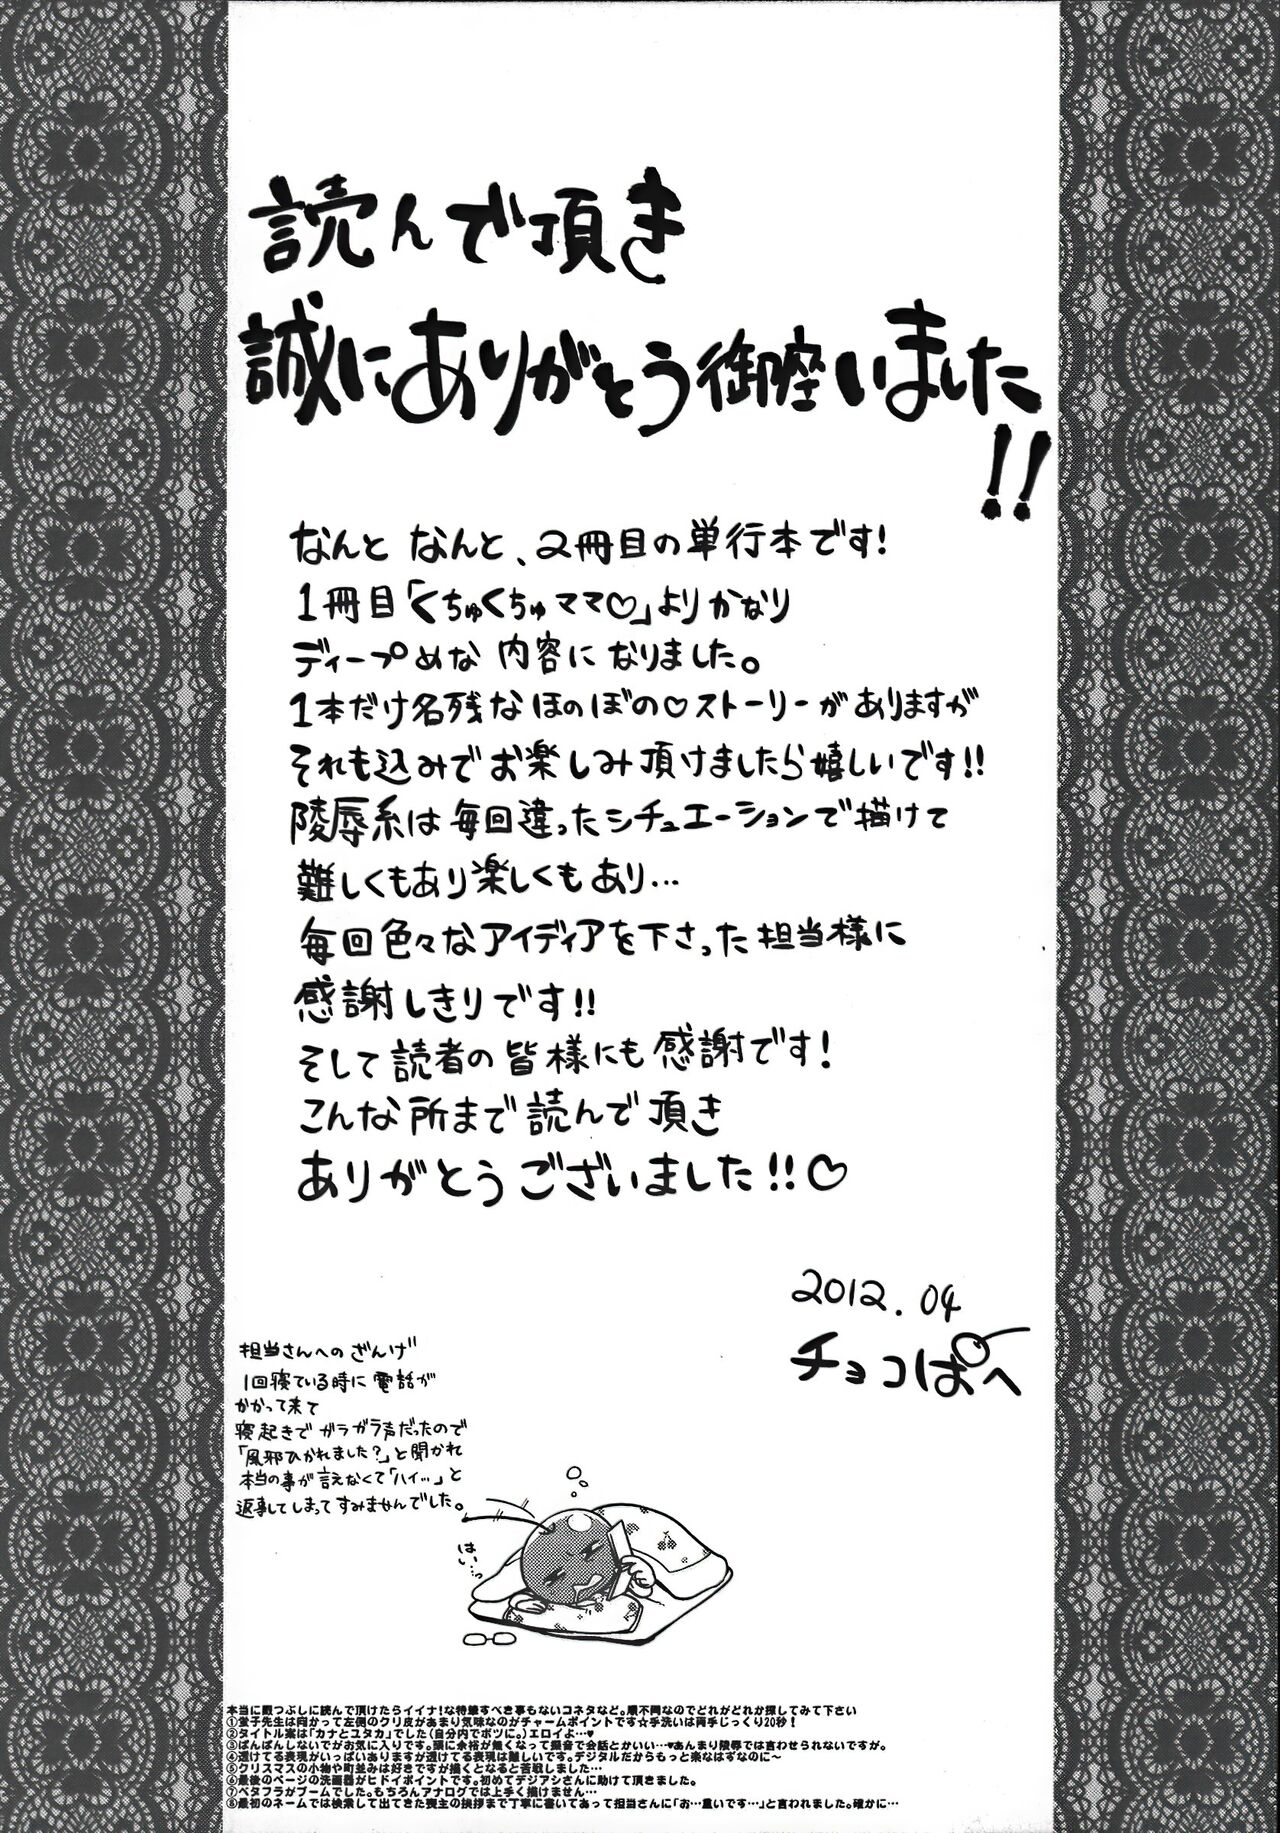 読んで頂き
誠にありがとう御座いました!!
なんと なんと、2冊目の単行本です!
1冊目「くちゅくちゅママ♡」よりかなり
ディープめな 内容になりました。
1本だけ名残なほのぼの♡ストーリーがありますが
それも込みでお楽しみ頂けましたら嬉しいです!!
陵辱系は毎回違ったシチュエーションで描けて
難しくもあり楽しくもあり…
毎回色々なアイディアを下さった担当様に
感謝しきりです!!
そして読者の皆様にも感謝です!
こんな所まで読んで頂き
ありがとうございました!!♡
2012.04
チョコぱへ
担当さんへのざんげ
1回寝ている時に電話が
かかって来て
寝起きでガラガラ声だったので
「風邪ひかれました?」と聞かれ
本当の事が言えなくて「ハイ…」と
返事してしまってすみませんでした。
はい…っ
本当に暇つぶしに読んで頂けたらイイナ!な特筆すべき事もないコネタなど。順不同なのでどれがどれか探してみて下さい
①蛍子先生は向かって左側のクリ皮があまり気味なのがチャームポイントです☆手洗いは両手じっくり20秒!
②タイトル案は「カナとユタカ」でした(自分内でボツに。)エロイよ…♥
③ぱんぱんしないでがお気に入りです。頭に余裕が無くなって擬音で会話とかいい…♥あんまり陵辱では言わせられないですが。
④透けてる表現がいっぱいありますが透けてる表現は難しいです。デジタルだからもっと楽なはずなのに〜
⑤クリスマスの小物や町並みは好きですが描くとなると苦戦しました…
⑥最後のページの洗面器がヒドイポイントです。初めてデジアシさんに助けて頂きました。
⑦ベタフラがブームでした。もちろんアナログでは上手く描けません…
⑧最初のネームでは検索して出てきた喪主の挨拶まで丁寧に書いてあって担当さんに「お…重いです…」と言われました。確かに…